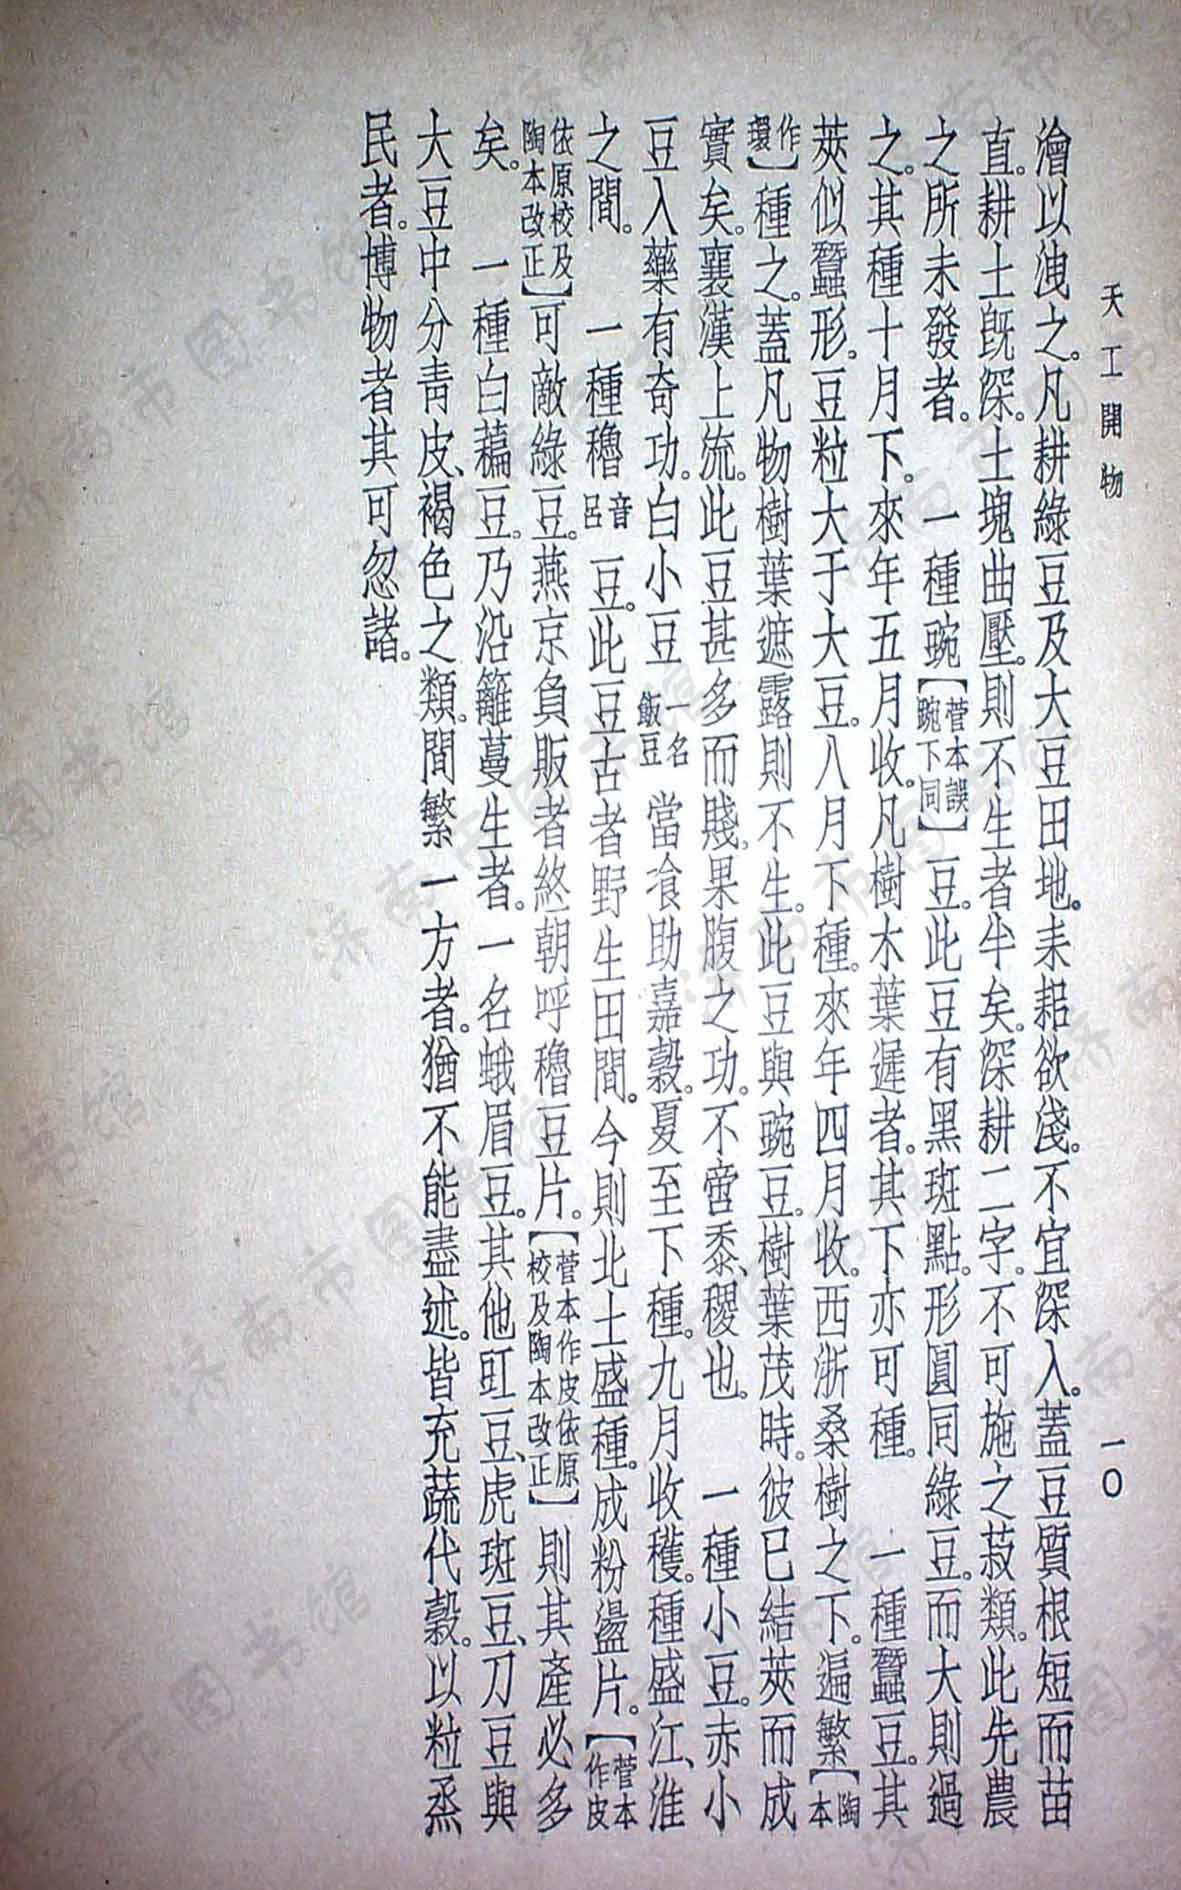 天工開物
一〇
澮以洩之。凡耕綠豆及大豆田地。耒耜欲淺。不宜深入。蓋豆質根短而苗
直。耕土旣深。土塊曲壓。則不生者半矣。深耕二字。不可施之菽類。此先農
之所未發者。　一種豌【菅本誤畹下同】豆。此豆有黑斑點。形圓同綠豆。而大則過
之。其種十月下。來年五月收。凡樹木葉遲者。其下亦可種。　一種蠶豆。其
莢似蠶形。豆粒大于大豆。八月下種。來年四月收。西浙桑樹之下。遍繁【陶本
作環】種之。蓋凡物樹葉遮露則不生。此豆與豌豆。樹葉茂時。彼已結莢而成
實矣。襄漢上流。此豆甚多而賤。果腹之功。不啻黍稷也。　一種小豆。赤小
豆入藥有奇功。白小豆一名飯豆當飡助嘉穀。夏至下種。九月收穫。種盛江、淮
之間。　一種穭音呂豆。此豆古者野生田間。今則北土盛種。成粉盪片。【菅本作皮
依原校及陶本改正】可敵綠豆。燕京負販者終朝呼穭豆片。【菅本作皮依原校及陶本改正】則其產必多
矣。　一種白藊豆。乃沿籬蔓生者。一名蛾眉豆。其他豇豆、虎斑豆、刀豆與
大豆中分青皮、褐色之類。間繁一方者。猶不能盡述。皆充蔬代穀。以粒烝
民者。博物者其可忽諸。
济南市图书馆